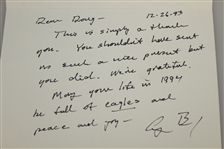 Dear Doug— 12-26-93
This is simply a thank
you. You shouldn't have sent
us such a nice present but
you did. We're grateful.
May your life in 1994
be full of eagles and
peace and joy—